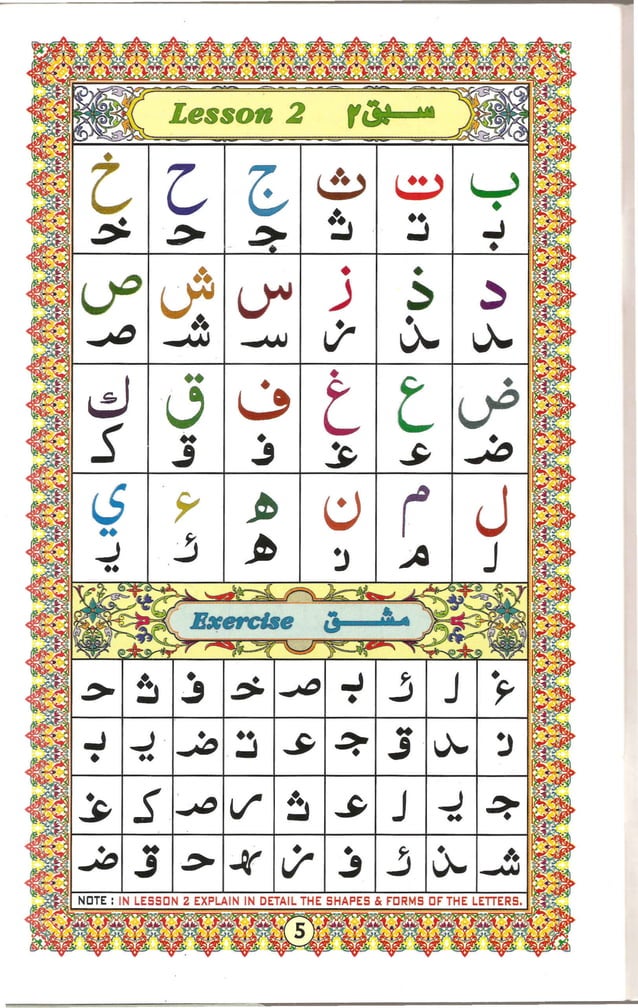 Lesson 2 سبق ۲
ب ت ث ج ح خ
بـ تـ ثـ جـ حـ خـ
د ذ ز س ش ص
ـد ـذ ـز سـ شـ صـ
ض ع غ ف ق ك
ضـ عـ غـ فـ قـ كـ
ل م ن ه ء ي
لـ مـ نـ هـ ئـ يـ
Exercise مشق
غـ لـ ئـ بـ صـ خـ فـ ثـ حـ
نـ ـد قـ جـ عـ تـ ضـ يـ بـ
جـ يـ لـ عـ ثـ ـر صـ كـ غـ
شـ ـذ ئـ فـ ـز ـهـ حـ قـ ضـ
NOTE : IN LESSON 2 EXPLAIN IN DETAIL THE SHAPES & FORMS OF THE LETTERS.
5